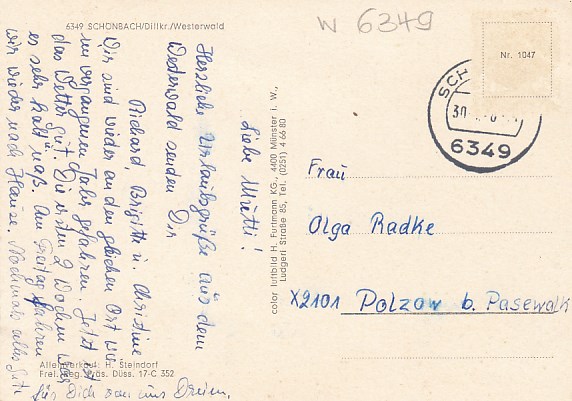 6349 SCHÖNBACH/Dillkr./Westerwald
W 6349
Nr. 1047
SCH
30.
6349
Liebe Mutti!
Herzliche Urlaubsgrüße aus dem
Westerwald senden Dir
Richard, Brigitte u. Christine
Wir sind wieder an den gleichen Ort wie
im vergangenen Jahr gefahren. Jetzt ist
das Wetter gut. Die ersten 2 Wochen war
es sehr kalt u. naß. Am Freitag fahren
wir wieder nach Hause. Nochmals alles Gute
für Dich von uns Dreien.
color luftbild H. Furtmann KG., 4400 Münster i. W.,
Ludgeri Straße 85, Tel. (0251) 4 66 80
Frau
Olga Radke
X2101 Polzow b. Pasewalk
Alleinverkauf: H. Steindorf
Freig. Reg. Präs. Düss. 17-C 352